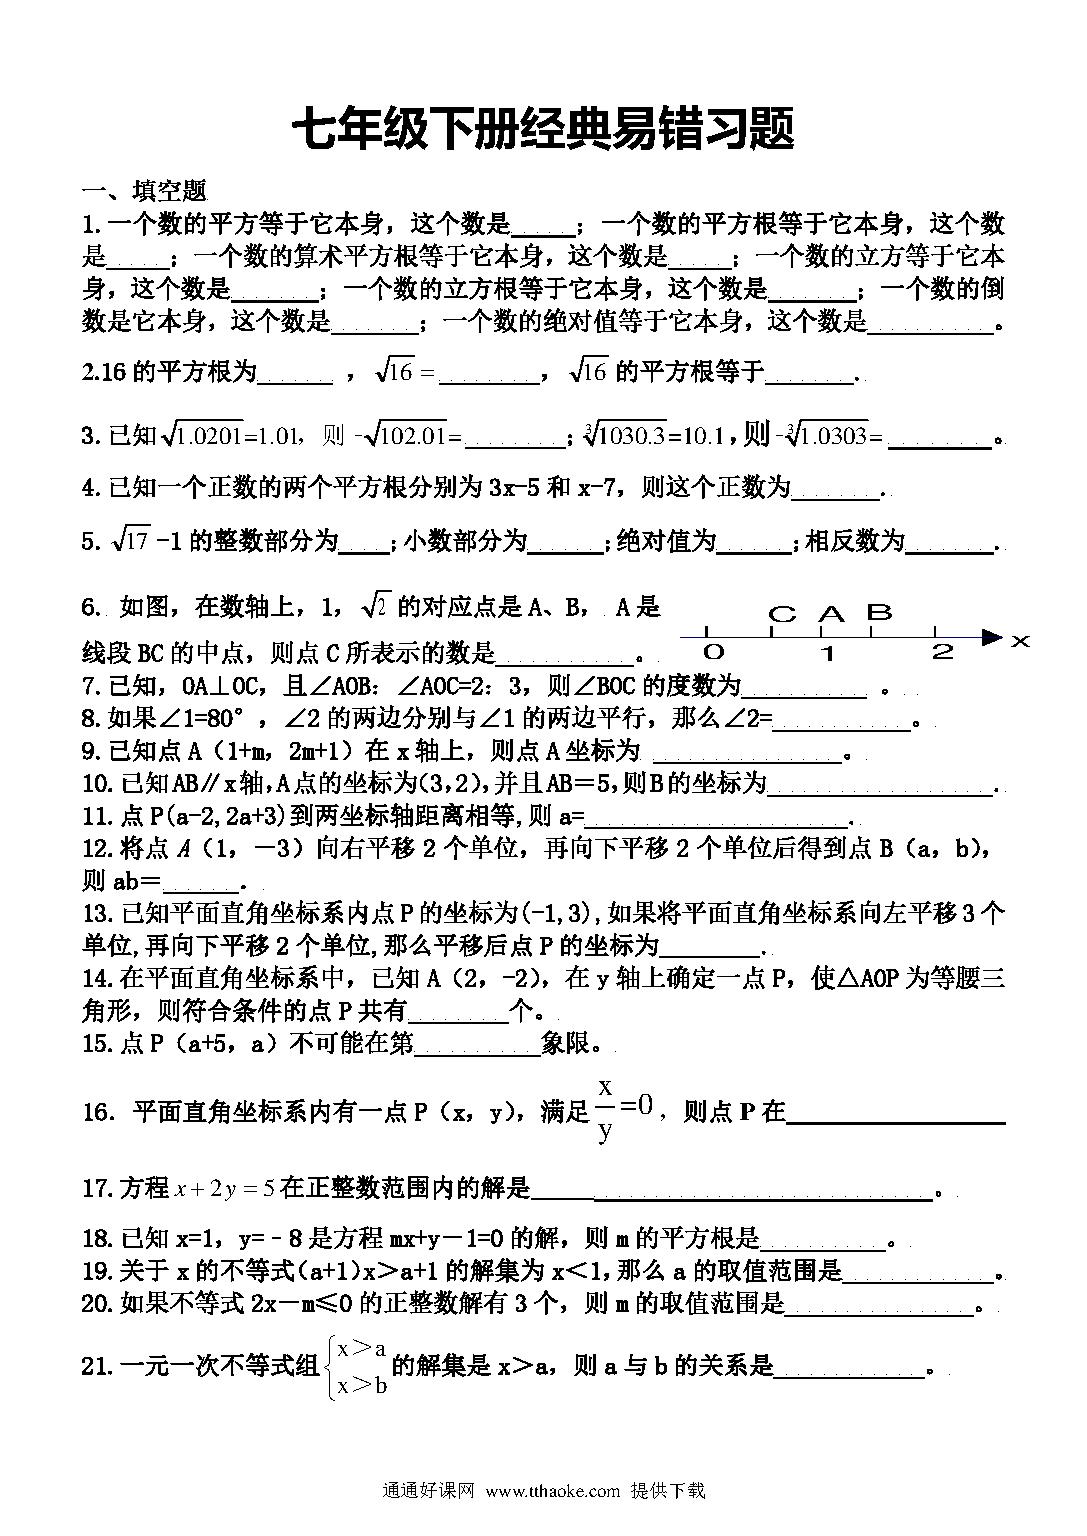 七年级下册经典易错习题
一、填空题
1.一个数的平方等于它本身，这个数是_____；一个数的平方根等于它本身，这个数
是_____；一个数的算术平方根等于它本身，这个数是_____；一个数的立方等于它本
身，这个数是_______；一个数的立方根等于它本身，这个数是_______；一个数的倒
数是它本身，这个数是_______；一个数的绝对值等于它本身，这个数是__________。
2.16的平方根为______，√16=________，√16的平方根等于_______.
3.已知√1.0201=1.01，则-√102.01=________；∛1030.3=10.1，则-∛1.0303=________。
4.已知一个正数的两个平方根分别为3x-5和x-7，则这个正数为_______.
5.√17-1的整数部分为____；小数部分为______；绝对值为______；相反数为_______.
6.如图，在数轴上，1，√2的对应点是A、B，A是
C A B
0 1 2 x
线段BC的中点，则点C所表示的数是___________。
7.已知，OA⊥OC，且∠AOB：∠AOC=2：3，则∠BOC的度数为__________。
8.如果∠1=80°，∠2的两边分别与∠1的两边平行，那么∠2=___________。
9.已知点A（1+m，2m+1）在x轴上，则点A坐标为_______________。
10.已知AB∥x轴，A点的坐标为（3，2），并且AB＝5，则B的坐标为__________________.
11.点P(a-2,2a+3)到两坐标轴距离相等,则a=_____________________.
12.将点A（1，－3）向右平移2个单位，再向下平移2个单位后得到点B（a，b），
则ab＝______．
13.已知平面直角坐标系内点P的坐标为(-1,3),如果将平面直角坐标系向左平移3个
单位,再向下平移2个单位,那么平移后点P的坐标为________.
14.在平面直角坐标系中，已知A（2，-2），在y轴上确定一点P，使△AOP为等腰三
角形，则符合条件的点P共有________个。
15.点P（a+5，a）不可能在第__________象限。
16．平面直角坐标系内有一点P（x，y），满足x/y=0，则点P在__________________
17.方程x+2y=5在正整数范围内的解是________________________________。
18.已知x=1，y=﹣8是方程mx+y－1=0的解，则m的平方根是__________。
19.关于x的不等式(a+1)x＞a+1的解集为x＜1,那么a的取值范围是____________。
20.如果不等式2x－m≤0的正整数解有3个，则m的取值范围是_______________。
21.一元一次不等式组{x＞a x＞b的解集是x＞a，则a与b的关系是____________。
通通好课网 www.tthaoke.com 提供下载